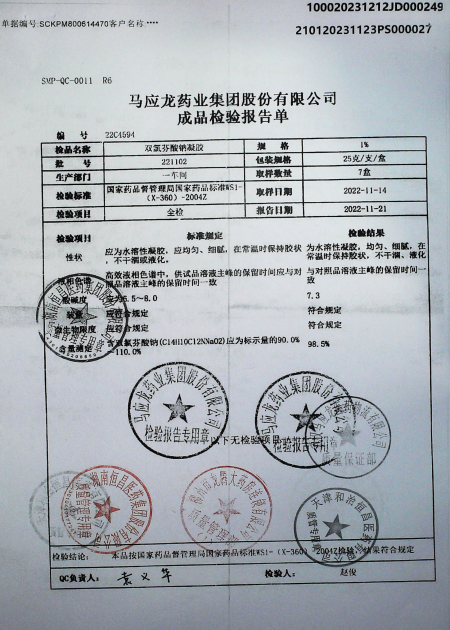 100020231212JD000249
单据编号:SCKPM800614470客户名称:****
210120231123PS000027
SMP-QC-0011 R6
马应龙药业集团股份有限公司
成品检验报告单
编 号 22C4594
检品名称 双氯芬酸钠凝胶 规 格 1%
批 号 221102 包装规格 25克/支/盒
生产部门 一车间 取样数量 7盒
检验标准 国家药品督管理局国家药品标准WS1-(X-360)-2004Z 取样日期 2022-11-14
检验项目 全检 报告日期 2022-11-21
检验项目 标准规定 检验结果
性状 应为水溶性凝胶，应均匀、细腻，在常温时保持胶状，不干涸或液化。 为水溶性凝胶，均匀、细腻，在常温时保持胶状，不干涸、液化
液相色谱 高效液相色谱中，供试品溶液主峰的保留时间应与对照品溶液主峰的保留时间一致 与对照品溶液主峰的保留时间一致
酸碱度 应为5.5～8.0 7.3
装量 应符合规定 符合规定
微生物限度 应符合规定 符合规定
含量测定 含双氯芬酸钠(C14H10C12NNaO2)应为标示量的90.0%~110.0% 98.5%
马应龙药业集团股份有限公司
检验报告专用章
以下无检验项目
马应龙药业集团股份有限公司
检验报告专用章
质量保证部
湖南恒昌医药集团股份有限公司
天津和治恒昌医药有限公司
检验结论: 本品按国家药品督管理局国家药品标准WS1-(X-360)-2004Z检验，结果符合规定
QC负责人: 袁义华 检验人: 赵俊